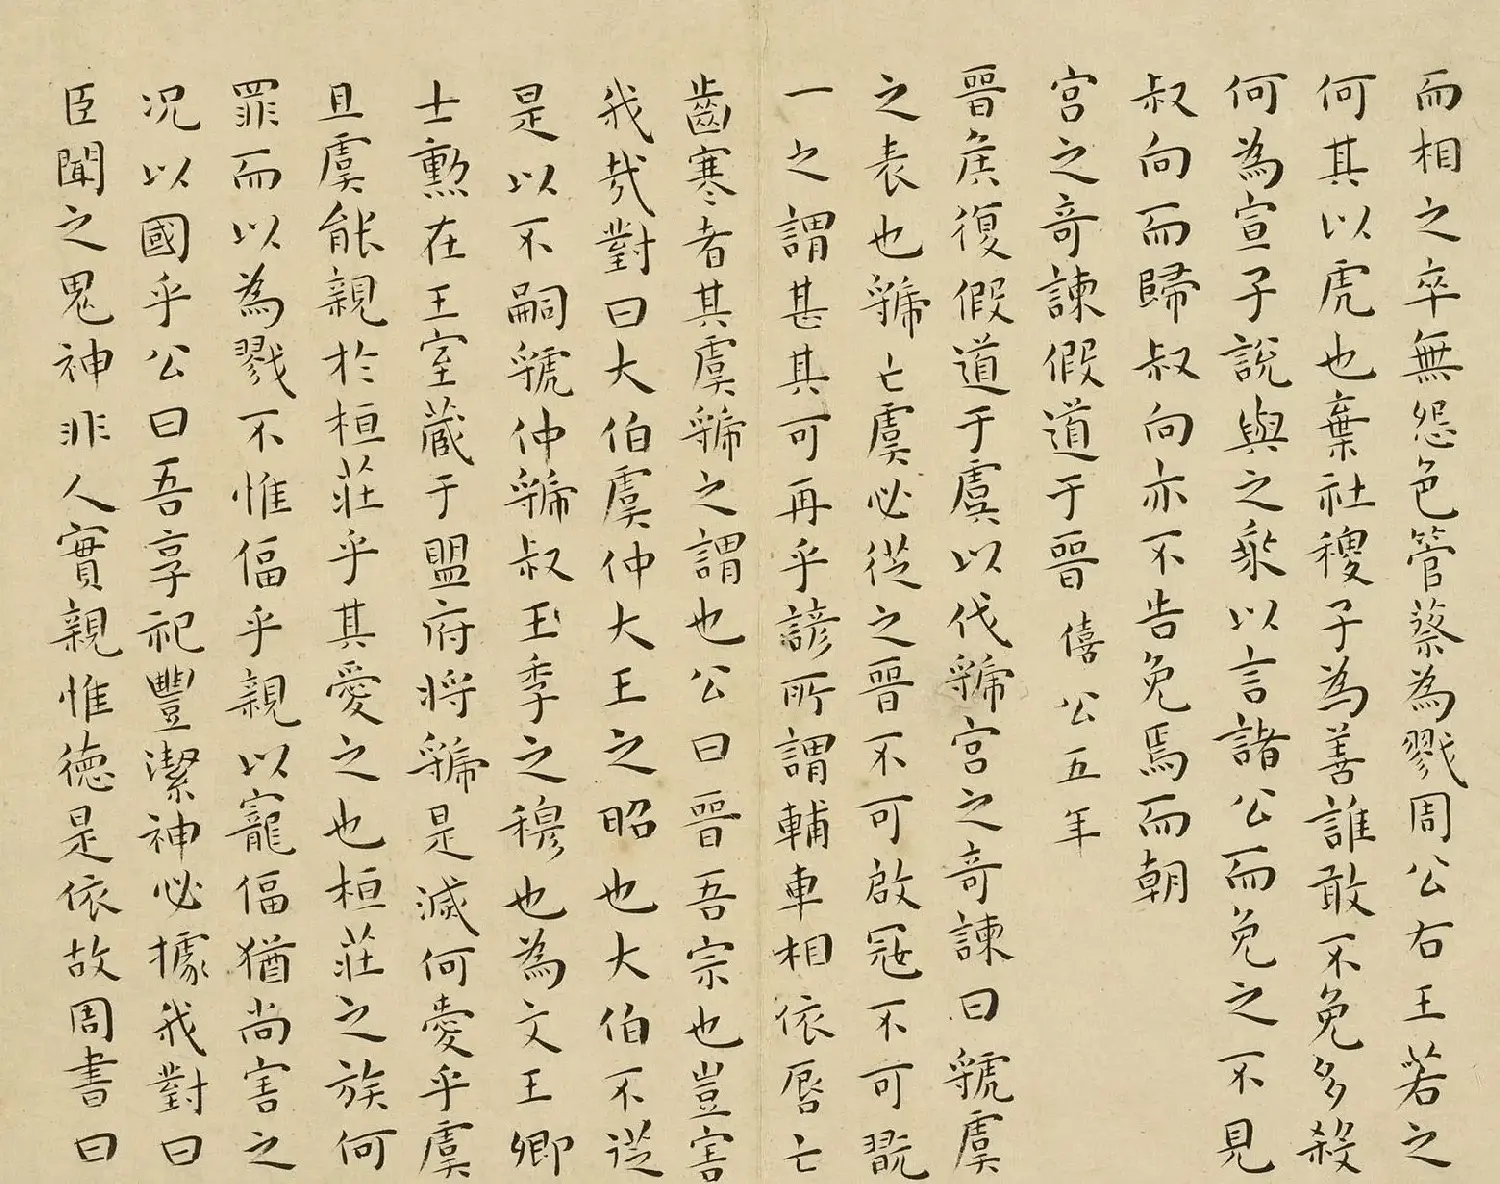 而相之卒無怨色管蔡為戮周公右王若之
何其以虎也棄社稷子為善誰敢不免多殺
何為宣子說與之乘以言諸公而免之不見
叔向而歸叔向亦不告免焉而朝
宮之奇諫假道于晉 僖公五年
晉侯復假道于虞以伐虢宮之奇諫曰虢虞
之表也虢亡虞必從之晉不可啟寇不可翫
一之謂甚其可再乎諺所謂輔車相依唇亡
齒寒者其虞虢之謂也公曰晉吾宗也豈害
我哉對曰大伯虞仲大王之昭也大伯不從
是以不嗣虢仲虢叔王季之穆也為文王卿
士勲在王室蔵于盟府将虢是滅何愛乎虞
且虞能親於桓莊乎其愛之也桓莊之族何
罪而以為戮不惟偪乎親以寵偪猶尚害之
況以國乎公曰吾享祀豐潔神必據我對曰
臣聞之鬼神非人實親惟德是依故周書曰